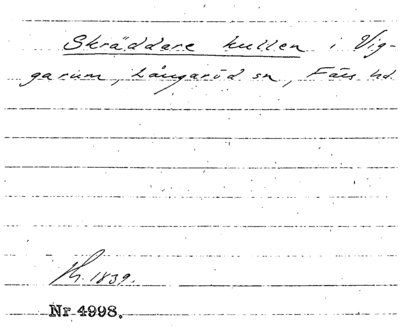 Skräddare kullen i Vig-
garum, Långaröd sn, Färs hd.
1839.
Nr 4998.